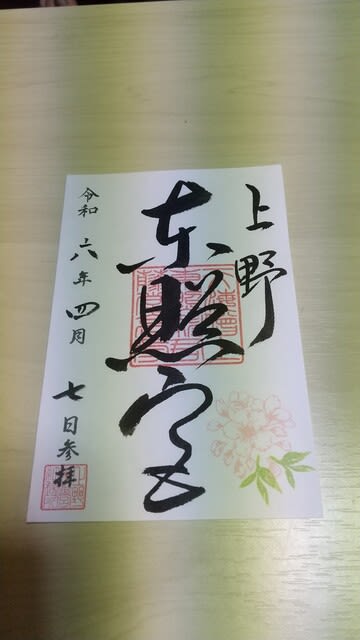 上野
東照宮
令和六年四月七日参拝